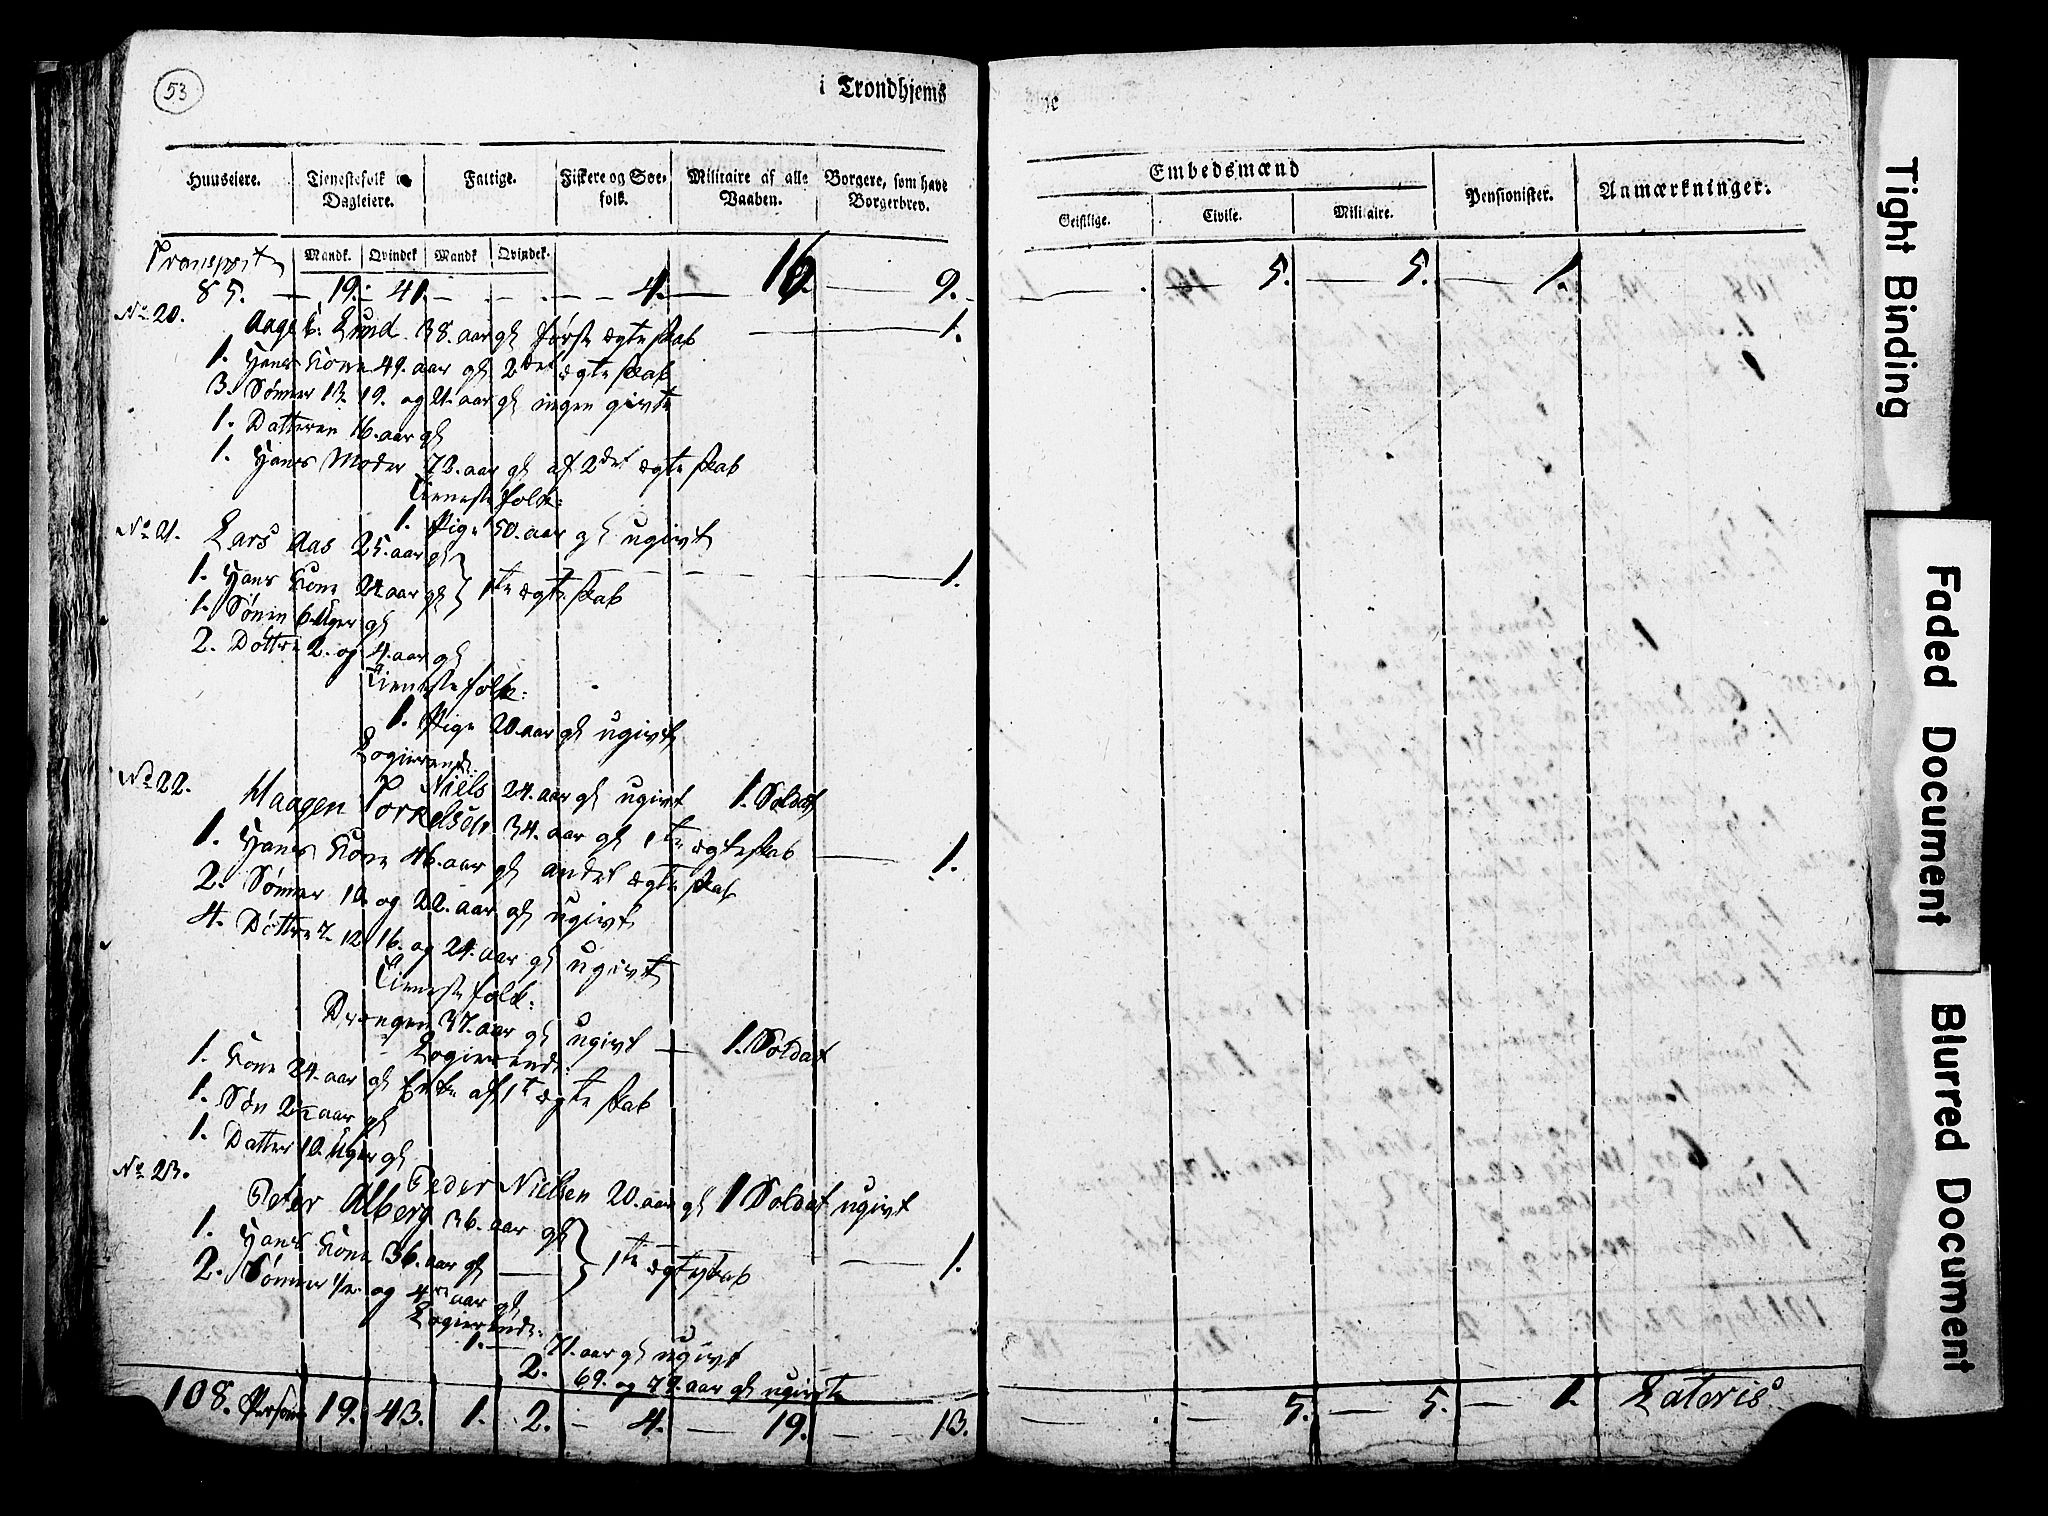 53
i Trondhjems
Huuseiere.
Tienestefolk
Dagleiere.
Fattige.
Fiskere og Søe-
folk.
Militaire af alle
Vaaben.
Borgere, som have
Borgerbrev.
Mandk. Qvindek Mandk Qvindek.
Transport
85. 19. 41. 4. 16. 9.
No 20. Aage C. Lund 38. aar gl første ægteskab 1.
1. Hans Kone 49. aar gl 2det ægteskab
3. Sønner 13. 19. og 21. aar gl ingen givte
1. Datteren 16. aar gl
1. Hans Moder 73. aar gl af 2det ægteskab
Tienestefolk:
1. Pige 50. aar gl ugivt
No 21. Lars Aas 25. aar gl
1. Hans Kone 24. aar gl } 1te ægteskab 1.
1. Sønen 6. Uger gl
2. Døttre 2. og 4. aar gl
Tienestefolk:
1. Pige 20. aar gl ugivt
Logierende:
Niels 24. aar gl ugivt 1. Soldat
No 22. Haagen Torkelsøn 34. aar gl 1te ægteskab
1. Hans Kone 46. aar gl andet ægteskab 1.
2. Sønner 10. og 22. aar gl ugivt
4. Døttre 7. 12. 16. og 24. aar gl ugivt
Tienestefolk:
Drengen 37. aar gl ugivt 1. Soldat
Logierende:
1. Kone 24. aar gl Enke af 1te ægteskab
1. Søn 2 1/2 aar gl
1. Datter 10. Uger gl
Peder Nielsen 20. aar gl 1 Soldat ugivt
No 23. Peter Alberg 36. aar gl
1. Hans Kone 36. aar gl } 1te ægteskab 1.
2. Sønner 1/2. og 4. aar gl
Logierende:
1. 71. aar gl ugivt
2. 69. og 79. aar gl ugivte
108. Personer 19. 43. 1. 2. 4. 19. 13.
Embedsmænd
Geistlige.
Civile.
Militaire.
Pensionister.
Anmærkninger.
5. 5. 1.
5. 5. 1. Lateris
Tight Binding
Faded Document
Blurred Document